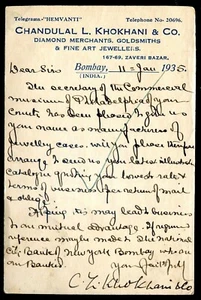 Telegrams:- "HEMVANTI" Telephone No- 20696.
CHANDULAL L. KHOKHANI & CO.
DIAMOND MERCHANTS, GOLDSMITHS
& FINE ART JEWELLERS.
167-69, ZAVERI BAZAR,
Bombay, 11 = Jan 1935.
(INDIA.)
Dear Sirs
The secretary of the Commercial
museum of Philadelphia of your
country has been pleased to give us
your name as manufacturers of
Jewellery cases, will you please
arrange to send us you latest illustrated
catalogue quoting your lowest rate &
terms of business per return of mail
& oblige.
Hoping this may lead business
on mutual advantage. If require
reference may be made to The national
City Bank of New York Bombay who are
our Bankers.
Yours faithfully
C. L. Khokhani & Co